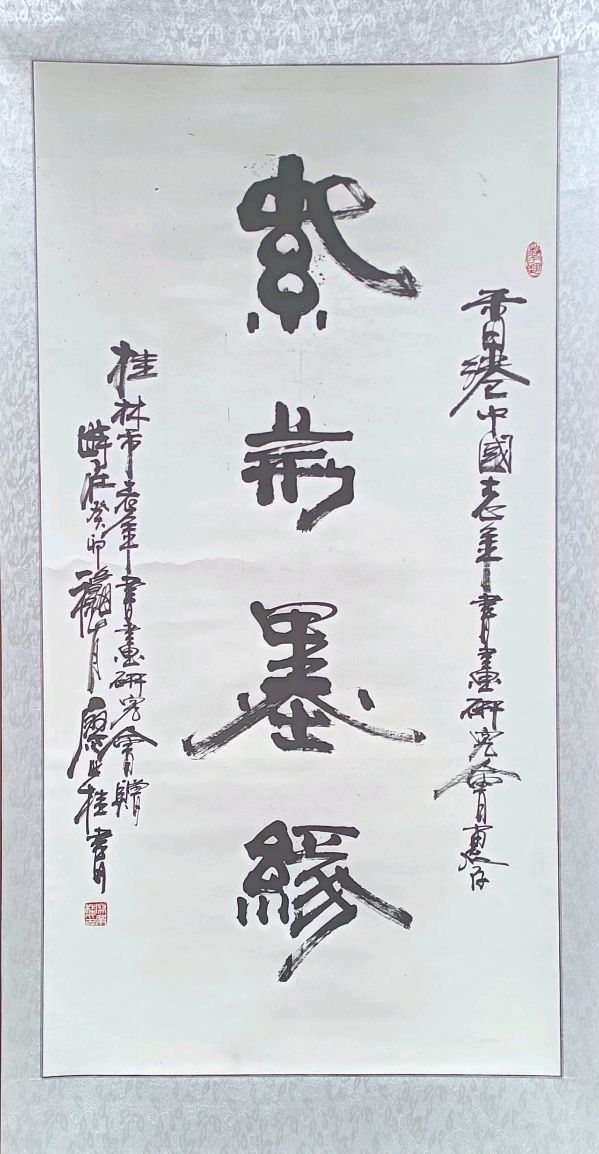 香港中國老年書畫研究會惠存
紫荊墨緣
桂林市老年書畫研究會贈
時在癸卯穐月廖桂書